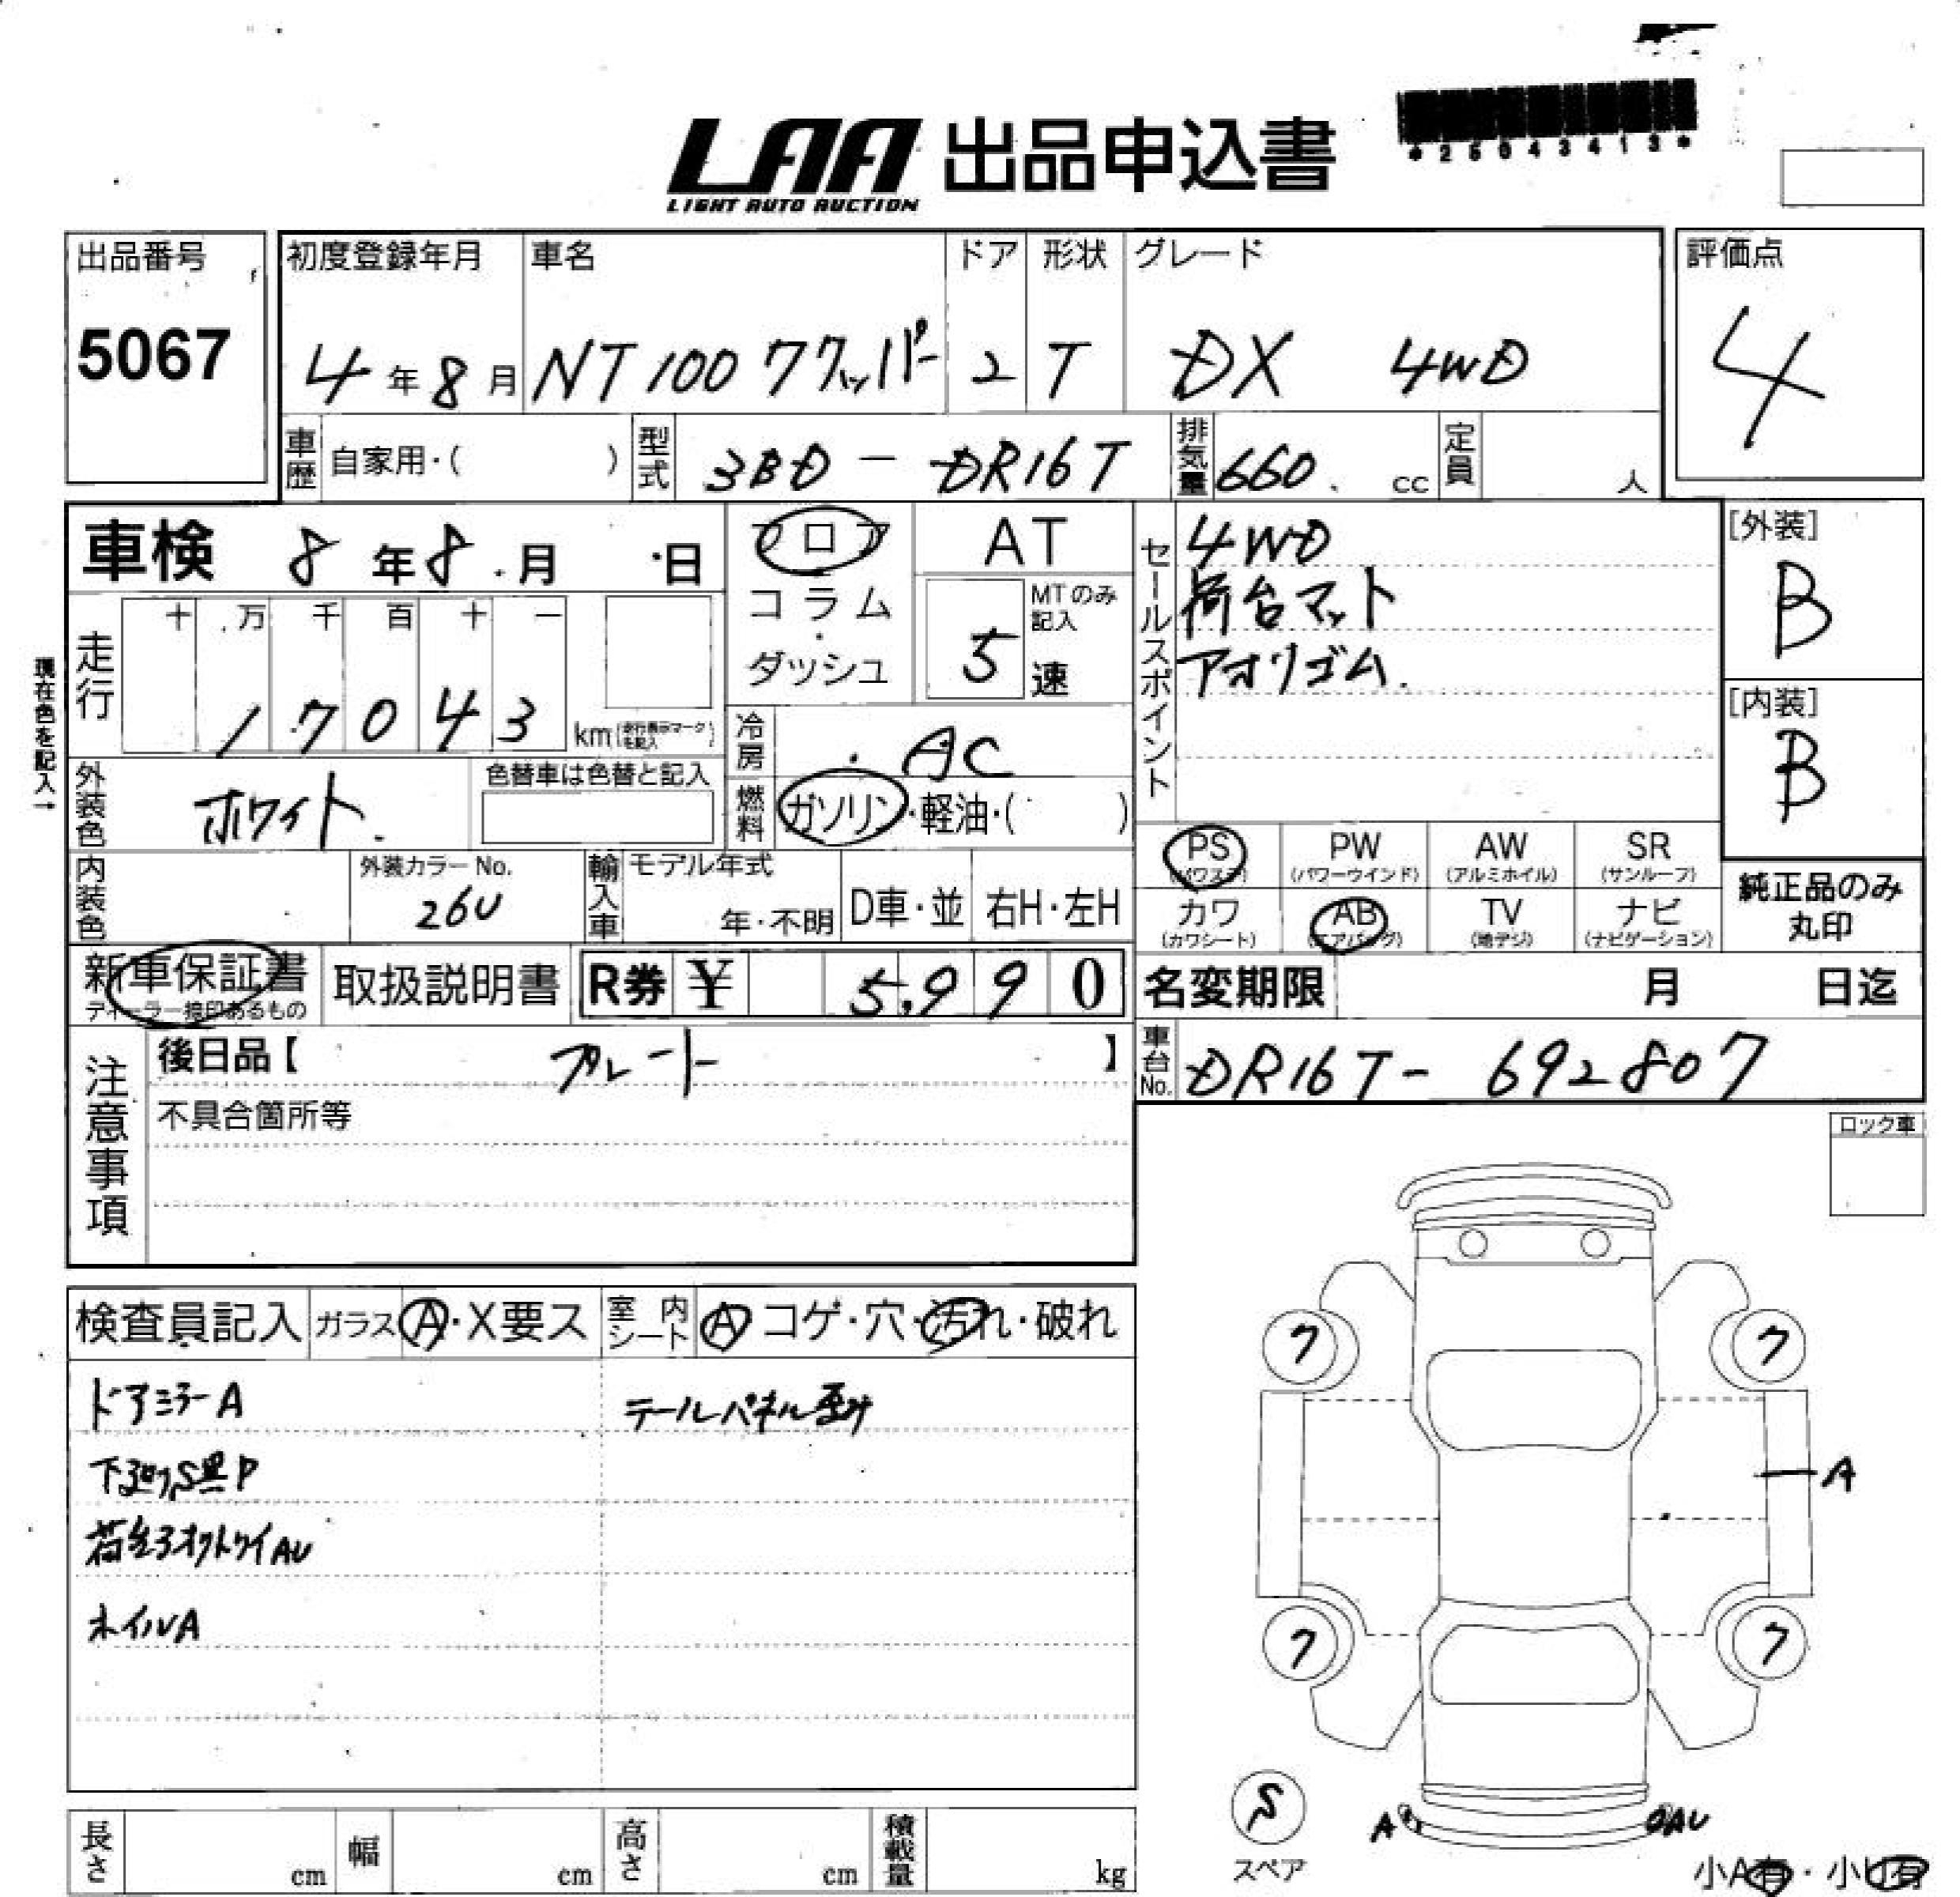 LAA 出品申込書
LIGHT AUTO AUCTION
*25043413*
出品番号
5067
初度登録年月
4年8月
車名
NT100 クリッパー
ドア
2
形状
T
グレード
DX 4WD
評価点
4
車歴 自家用・( )
型式 3BD - DR16T
排気量 660. cc
定員 人
車検 8年8.月 ・日
フロア
コラム
・
ダッシュ
AT
MTのみ
記入
5 速
走行
十 万 千 百 十 一
17043 km
現在色を記入→
外装色 ホワイト.
色替車は色替と記入
冷房 AC
燃料 ガソリン・軽油・( )
セールスポイント
4WD
荷台マット
アオリゴム.
[外装]
B
[内装]
B
内装色
外装カラーNo.
26U
輸入車
モデル年式
年・不明
D車・並
右H・左H
PS (パワステ)
PW (パワーウインド)
AW (アルミホイル)
SR (サンルーフ)
カワ (カワシート)
AB (エアバッグ)
TV (地デジ)
ナビ (ナビゲーション)
純正品のみ
丸印
新車保証書
ディーラー捺印あるもの
取扱説明書
R券 ¥ 5,990
名変期限 月 日迄
車台No. DR16T- 692807
注意事項
後日品【 プレート 】
不具合箇所等
ロック車
検査員記入
ガラス A・X要ス
室内シート A コゲ・穴・汚れ・破れ
ドアミラーA
テールパネル歪み
下廻りS黒P
荷台アオリトリイAU
ホイルA
ワ
ワ
A
ワ
ワ
S
スペア
A
AU
小A有・小U有
長さ cm
幅 cm
高さ cm
積載量 kg